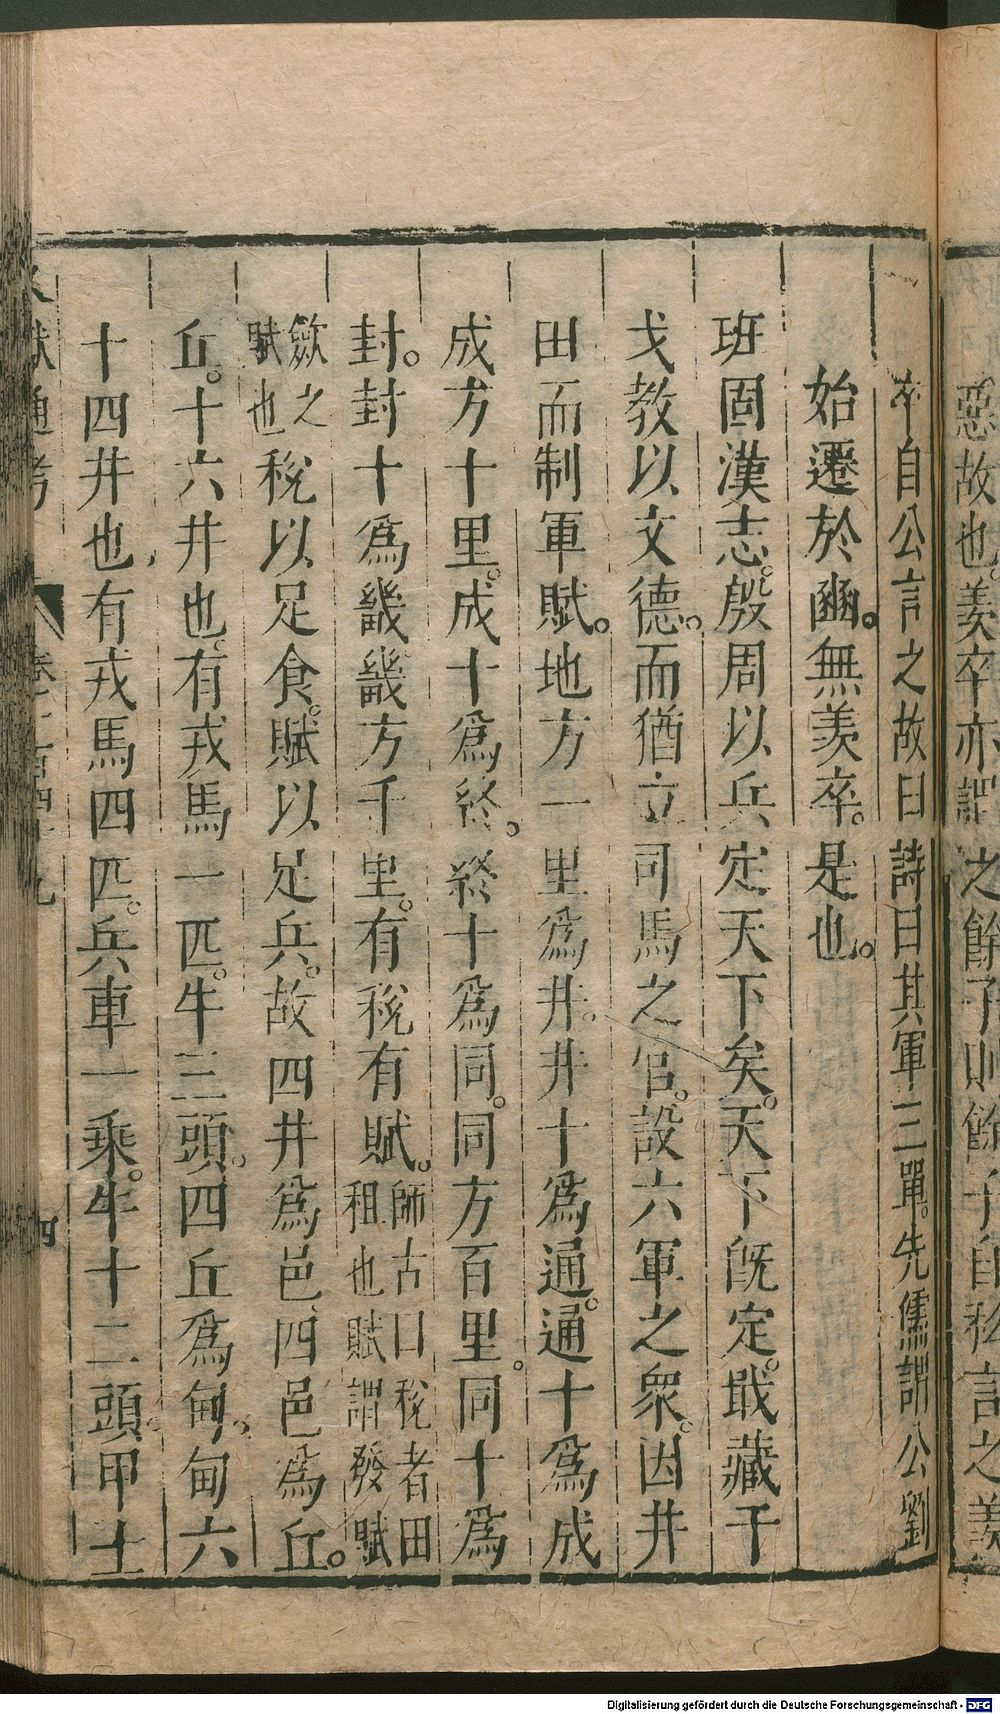 惡故也。羨卒亦謂之餘子則餘子自私言之羨
卒自公言之故曰詩曰其軍三單。先儒謂公劉
始遷於豳。無羨卒。是也。
班固漢志。殷周以兵定天下矣。天下旣定。戢藏干
戈教以文德。而猶立司馬之官。設六軍之衆。因井
田而制軍賦。地方一里爲井。井十爲通。通十爲成
成方十里。成十爲終。終十爲同。同方百里。同十爲
封。封十爲畿畿方千里。有稅有賦。師古曰稅者田
租也賦謂發賦
歛之
賦也
稅以足食。賦以足兵。故四井爲邑、四邑爲丘。
丘。十六井也。有戎馬一匹。牛三頭。四丘爲甸。甸六
十四井也、有戎馬四匹。兵車一乘。牛十二頭。甲士
文獻通考 卷一百四十九 四
Digitalisierung gefördert durch die Deutsche Forschungsgemeinschaft - DFG